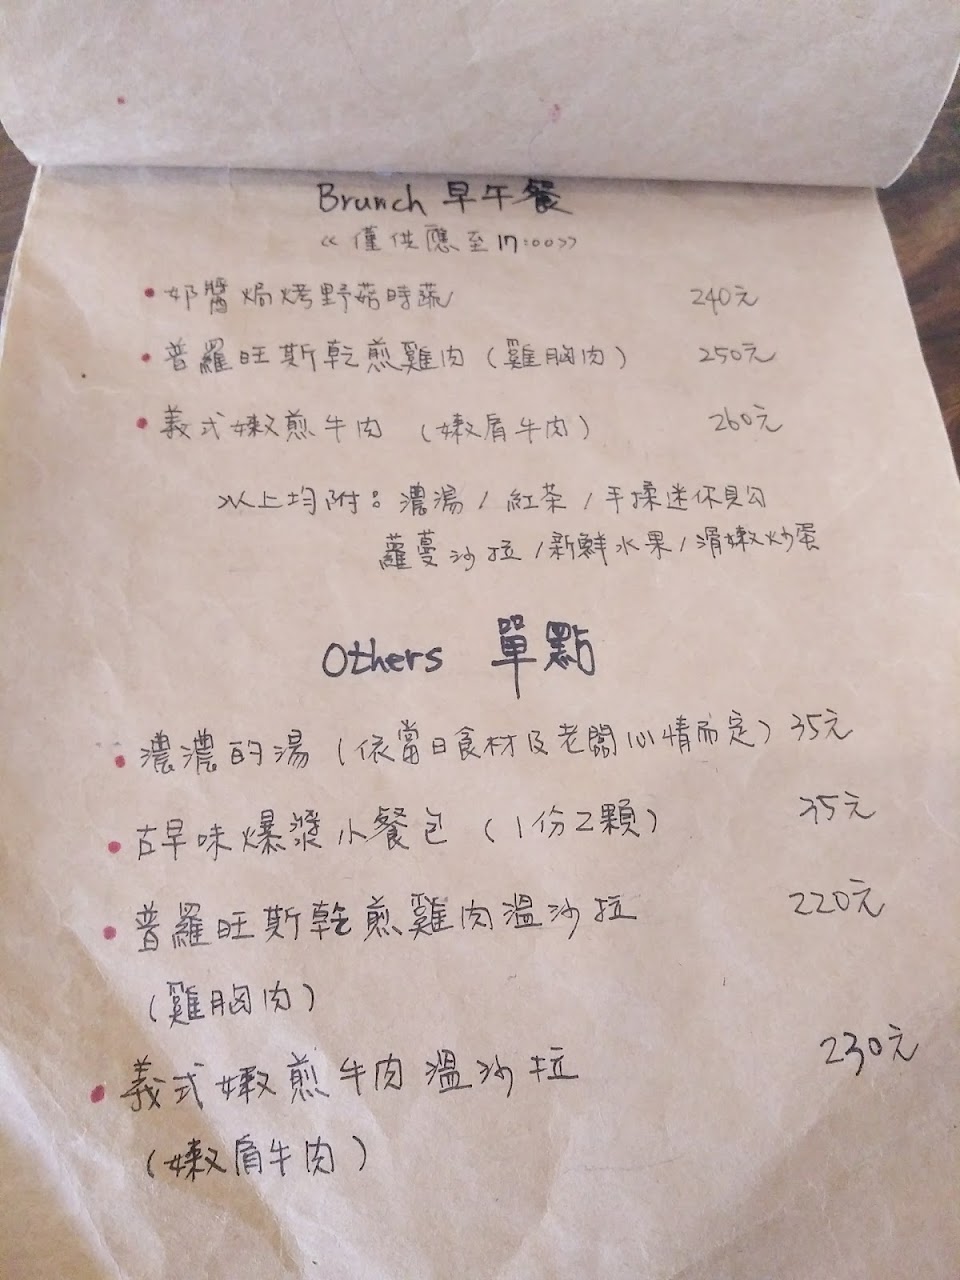 Brunch 早午餐
<<僅供應至17:00>>
• 奶醬焗烤野菇時蔬 240元
• 普羅旺斯乾煎雞肉(雞胸肉) 250元
• 義式嫩煎牛肉 (嫩肩牛肉) 260元
以上均附:濃湯/紅茶/手揉迷你貝勾
蘿蔓沙拉/新鮮水果/滑嫩炒蛋
Others 單點
• 濃濃的湯(依當日食材及老闆心情而定) 35元
• 古早味爆漿小餐包 (1份2顆) 35元
• 普羅旺斯乾煎雞肉溫沙拉 220元
(雞胸肉)
• 義式嫩煎牛肉溫沙拉 230元
(嫩肩牛肉)